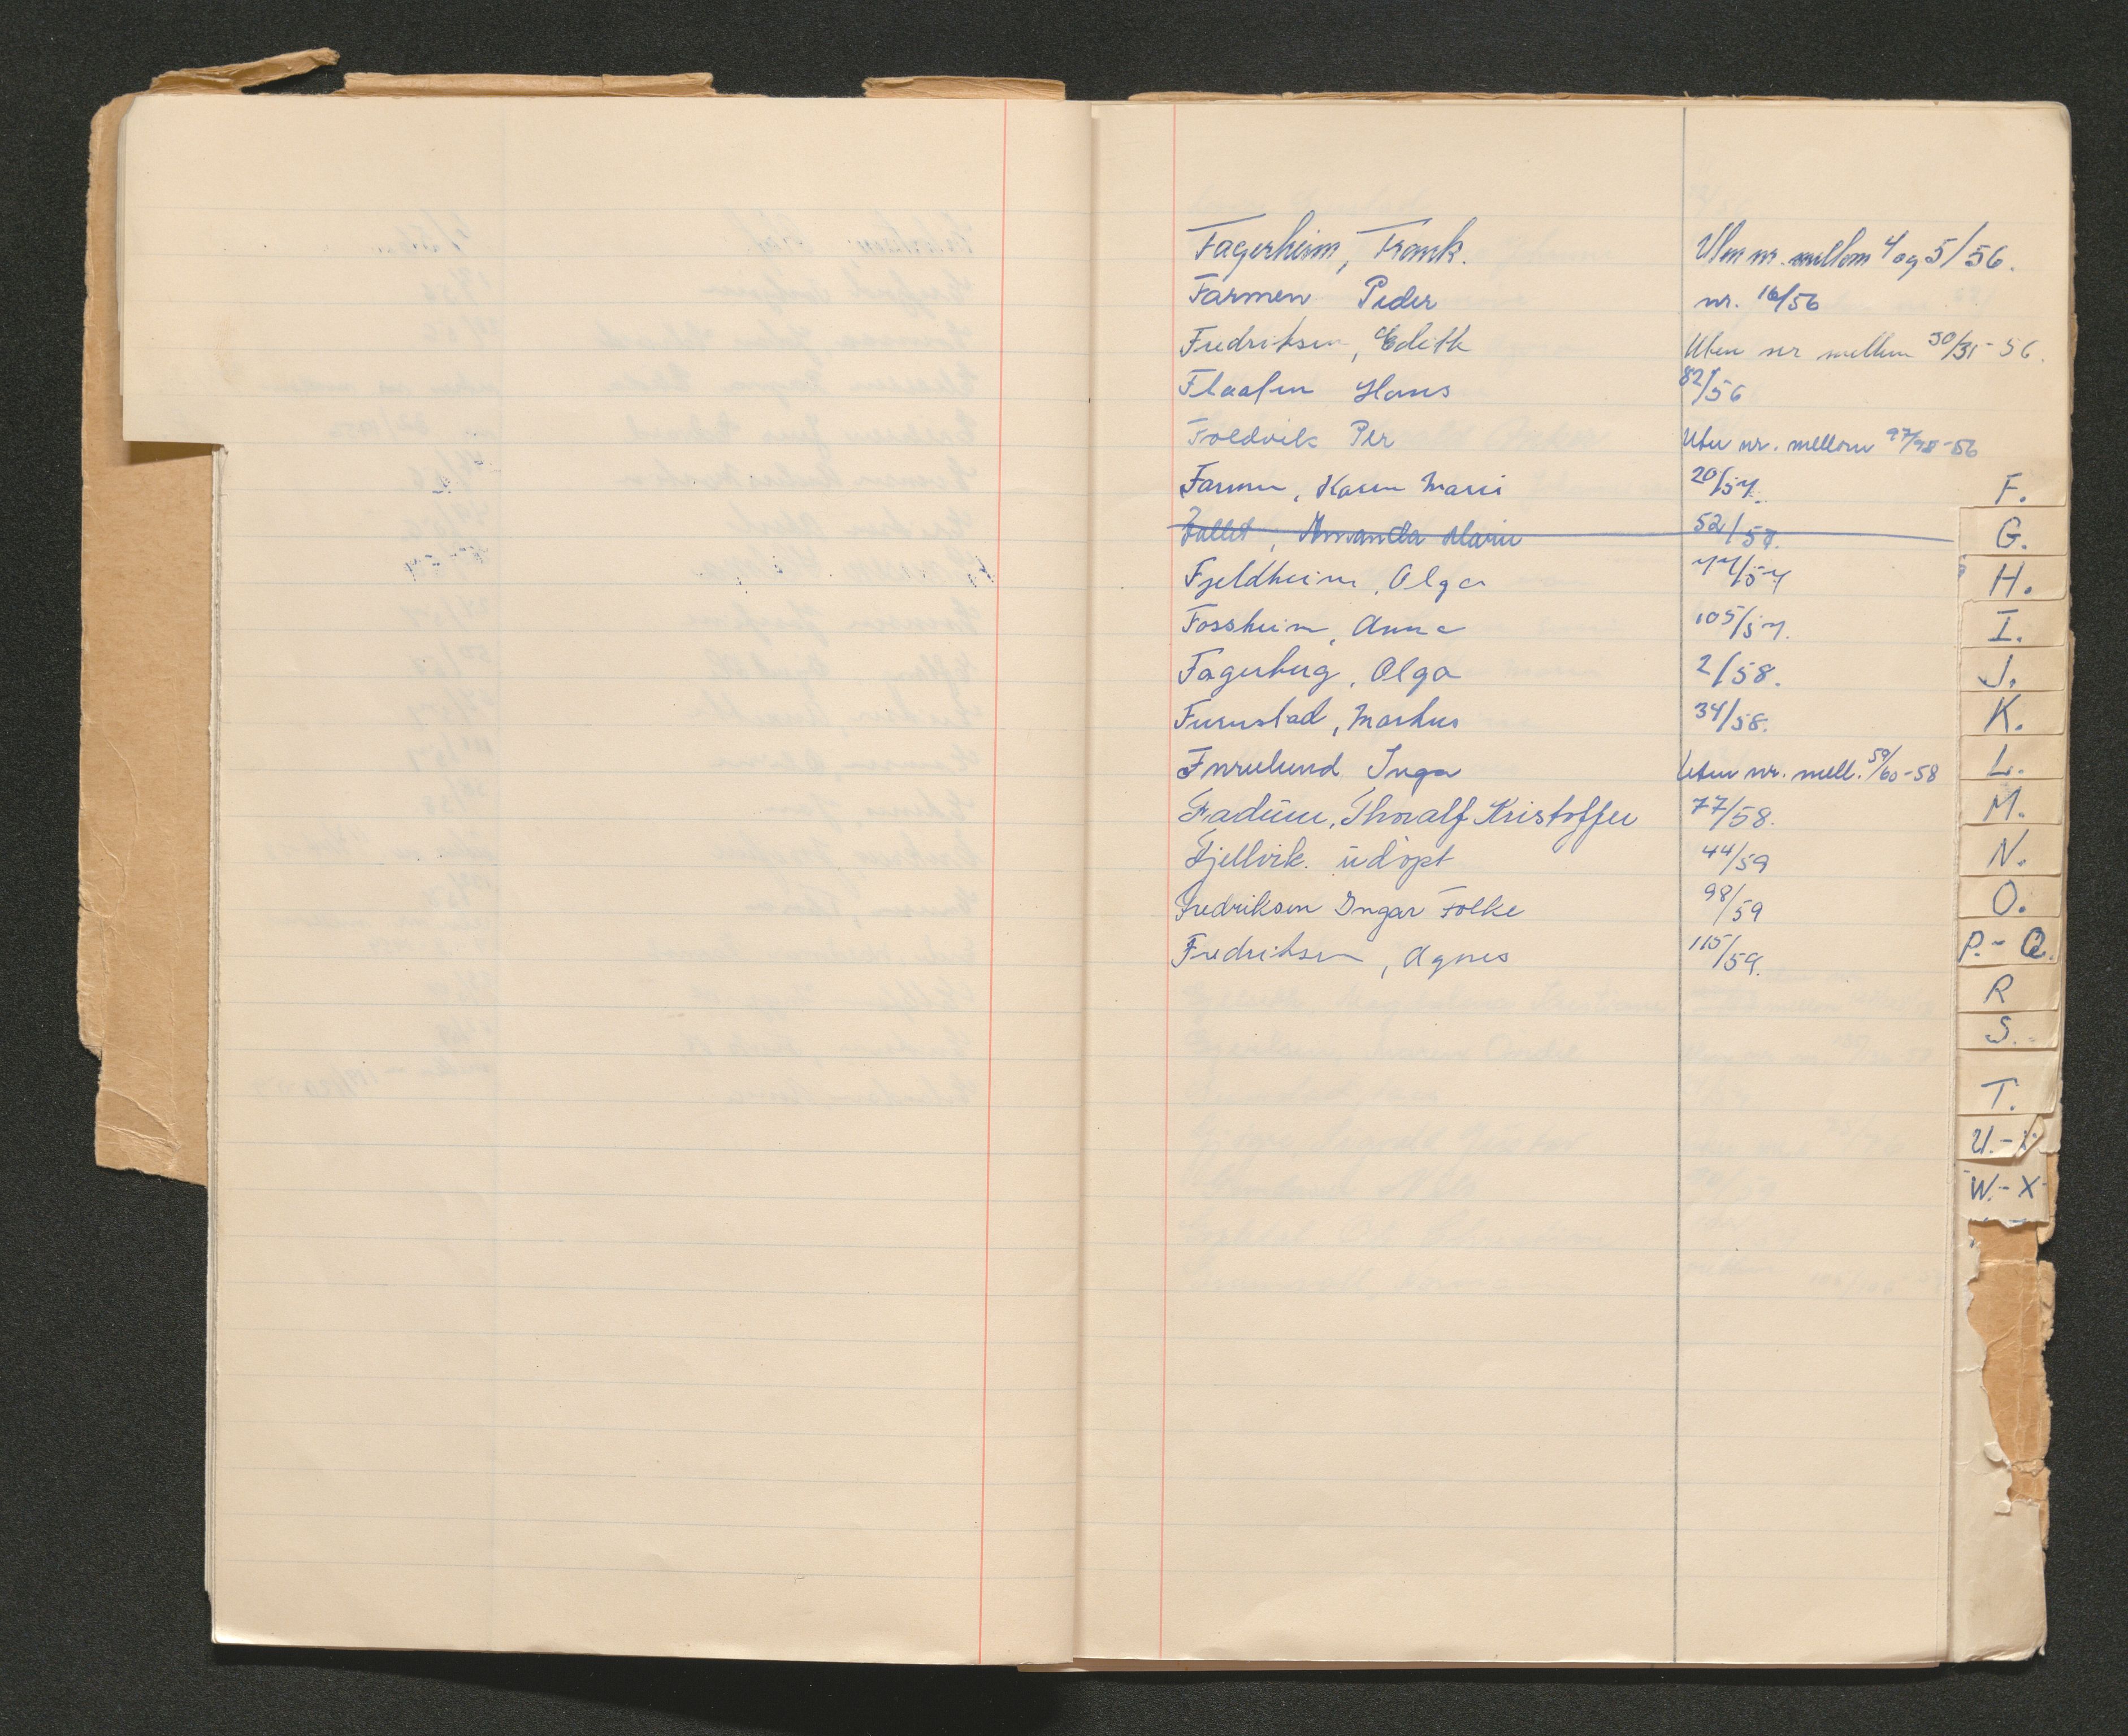 Fagerheim, Frank. Uten nr. mellom 4 og 5/56.
Farmen Peder nr. 16/56
Fredriksen, Edith Uten nr mellem 30/31-56.
Flaaten Hans 82/56
Foldvik Per Uten nr. mellom 97/98-56
Farmen, Karen Marie 20/57.
Fallet, Amanda Marie 52/57.
Fjeldheim, Olga 77/57
Fossheim, Anna 105/57.
Fagerberg, Olga 2/58.
Furustad, Markus 34/58.
Furulund Inga Uten nr. mell. 59/60-58
Fadum, Thoralf Kristoffer 77/58.
Fjellvik. udøpt 44/59
Fredriksen Ingar Folke 98/59
Fredriksen, Agnes 115/59.
F.
G.
H.
I.
J.
K.
L.
M.
N.
O.
P.-Q.
R
S.
T.
U.-
W.-X